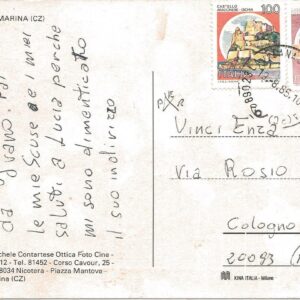 MARINA (CZ)
da
le mie scuse de i miei
saluti a Lucia perche
mi sono dimenticato
il suo indirizzo
chele Contartese Ottica Foto Cine -
Tel. 81452 - Corso Cavour, 25 -
8034 Nicotera - Piazza Mantova
(CZ)
CASTELLO
ARAGONESE - ISCHIA
100
ITALIA
Vinci Enza
Via Rosio
Cologno
20093 (
KINA ITALIA - Milano